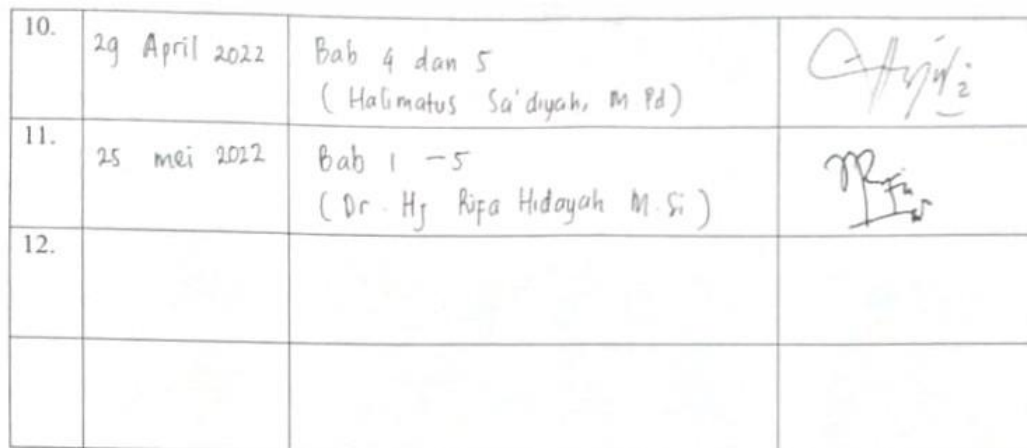 10.
29 April 2022
Bab 4 dan 5
( Halimatus Sa'diyah, M Pd )
11.
25 mei 2022
Bab 1 - 5
( Dr. Hj Rifa Hidayah M.Si )
12.